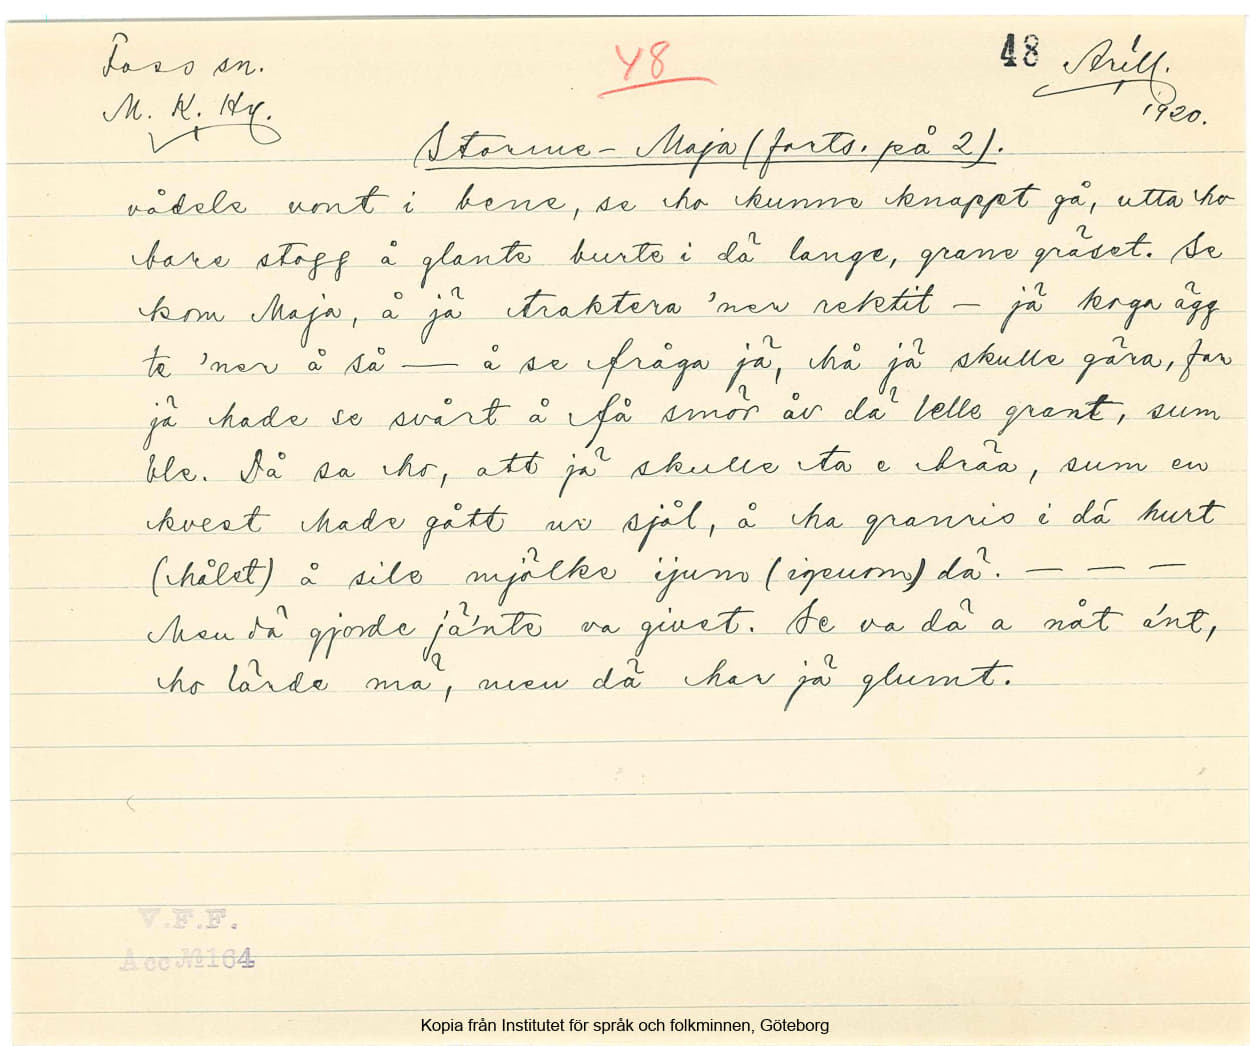 Foss sn.
48
48
Arill.
M. K. Hy.
1920.
Storme-Maja (forts. på 2).
vådele vont i bene, se ho kunne knappt gå, utta ho
bare stogg å glante burte i dä lange, grane gräset. Se
kom Maja, å jä traktera 'ner rektit — jä koga ägg
te 'ner å så — å se fråga jä, hå jä skulle gära, for
jä hade se svårt å få smör åv dä lelle grant, sum
ble. Då sa ho, att jä skulle ta e bräa, sum en
kvest hade gått ur sjål, å ha granris i dä hurt
(hålet) å sile mjölke ijum (igenom) dä. — — —
Men dä gjorde jä'nte va givet. Se va dä a nåt ánt,
ho lärde mä, men dä har jä glumt.
V.F.F.
Acc №164
Kopia från Institutet för språk och folkminnen, Göteborg